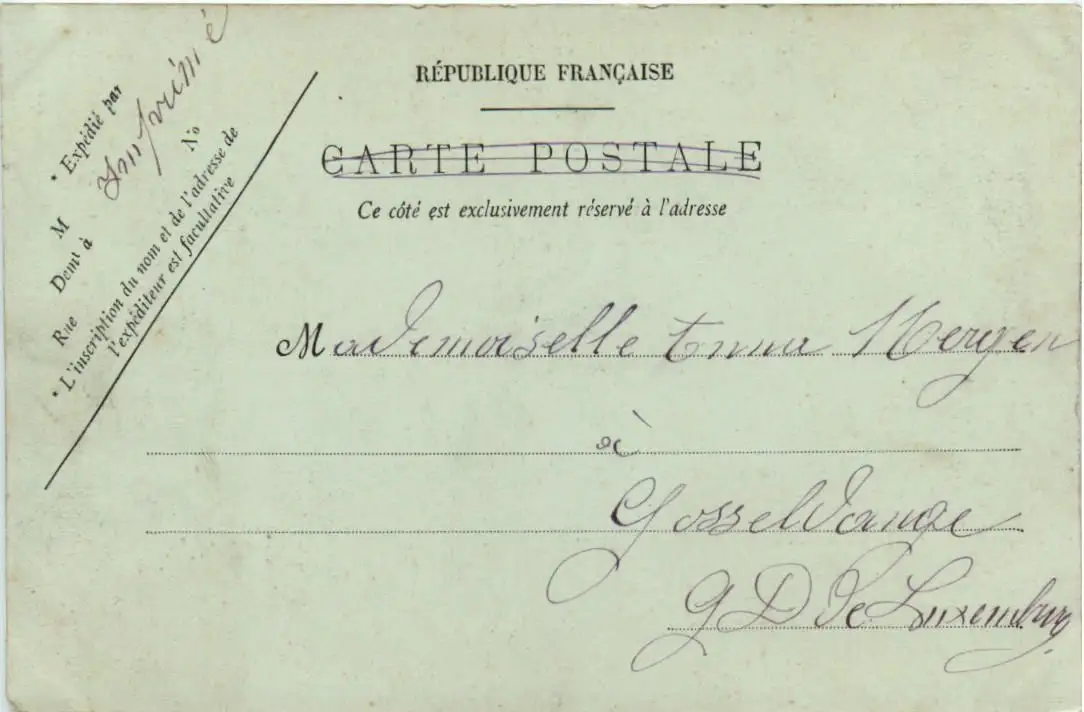 RÉPUBLIQUE FRANÇAISE
CARTE POSTALE
Ce côté est exclusivement réservé à l'adresse
* Expédié par
Imprimé
M
N°
Demt à
Rue
* L'inscription du nom et de l'adresse de
l'expéditeur est facultative
Mademoiselle Anna Mergen
à
Gosseldange
G D de Luxemburg